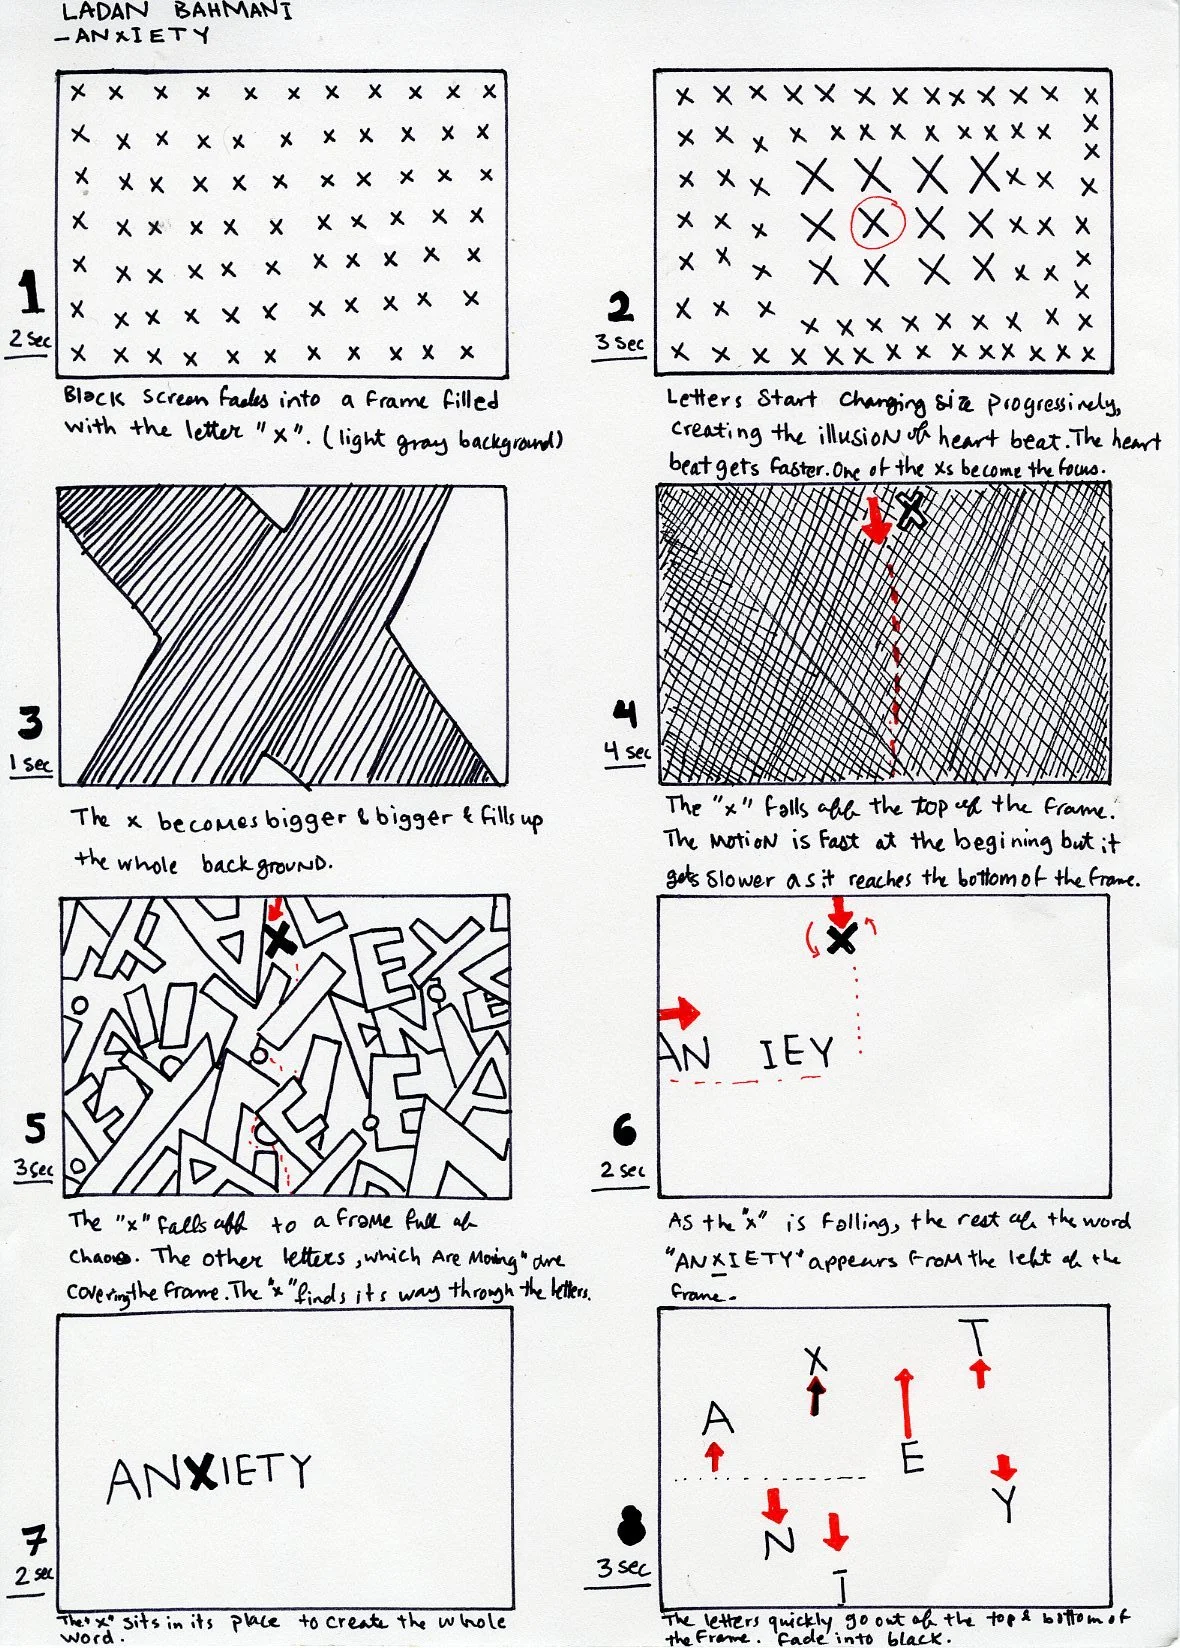 LADAN BAHMANI
-ANXIETY
1
2 sec
Black screen fades into a frame filled
with the letter "x". (light gray background)
2
3 sec
Letters start changing size progressively,
creating the illusion of heart beat. The heart
beat gets faster. One of the xs become the focus.
3
1 sec
The x becomes bigger & bigger & fills up
the whole background.
4
4 sec
The "x" falls off the top of the frame.
The motion is fast at the begining but it
gets slower as it reaches the bottom of the frame.
5
3 sec
The "x" falls off to a frame full of
chaos. The other letters, which are moving" are
covering the frame. The "x" finds its way through the letters.
AN IEY
X
6
2 sec
As the "x" is falling, the rest of the word
"ANXIETY" appears from the left of the
frame.
ANXIETY
7
2 sec
The "x" sits in its place to create the whole
word.
T
X
A
E
Y
N
I
8
3 sec
The letters quickly go out of the top & bottom of
the frame. Fade into black.